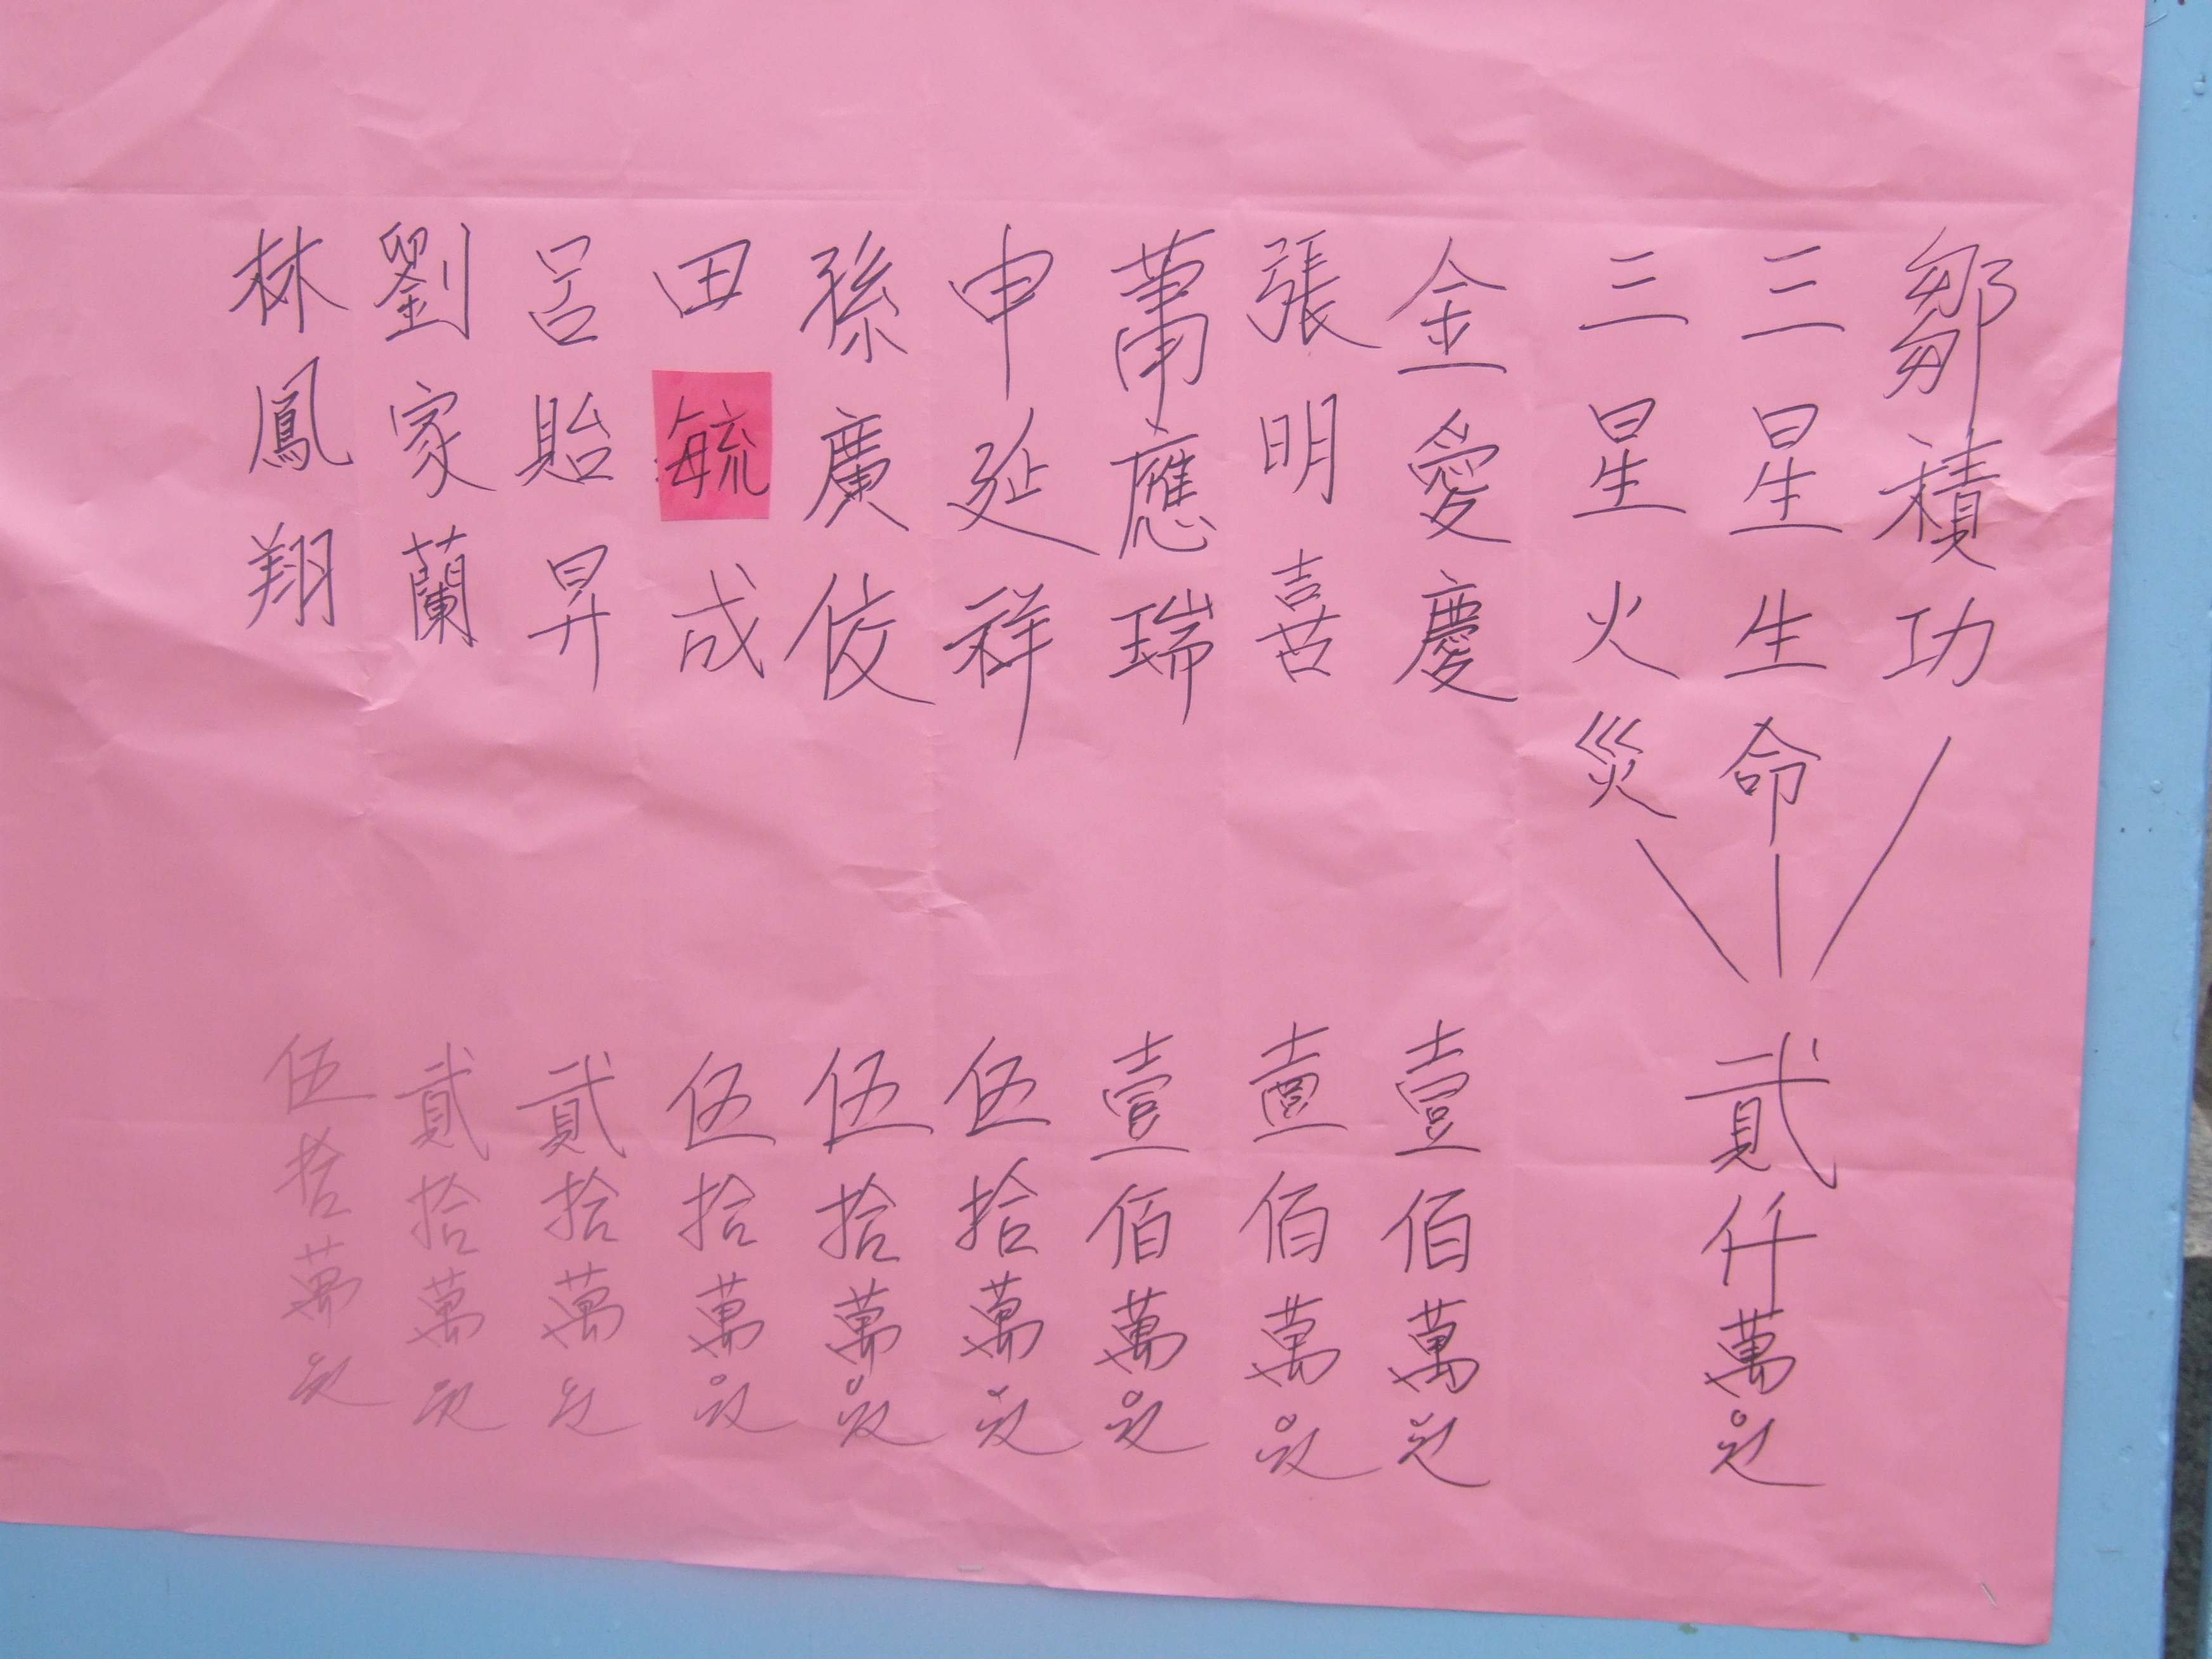 鄒積功
三星生命
三星火災
貳仟萬원
金愛慶 壹佰萬원
張明喜 壹佰萬원
蕭應瑞 壹佰萬원
申延祥 伍拾萬원
孫廣佼 伍拾萬원
田毓成 伍拾萬원
呂貽昇 貳拾萬원
劉家蘭 貳拾萬원
林鳳翔 伍拾萬원